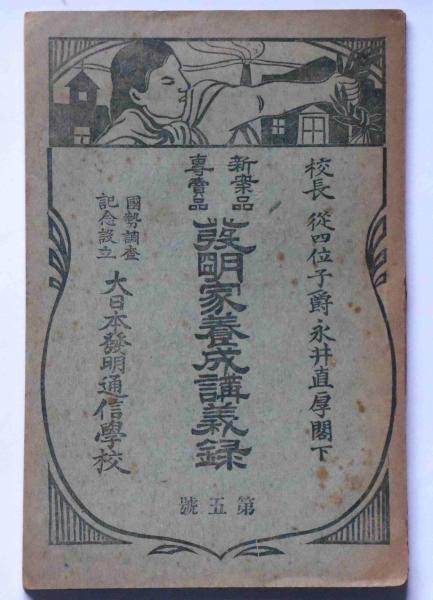 校長 從四位子爵永井直厚閣下
新案品
專賣品
發明家養成講義録
國勢調査
記念設立
大日本發明通信學校
第五號